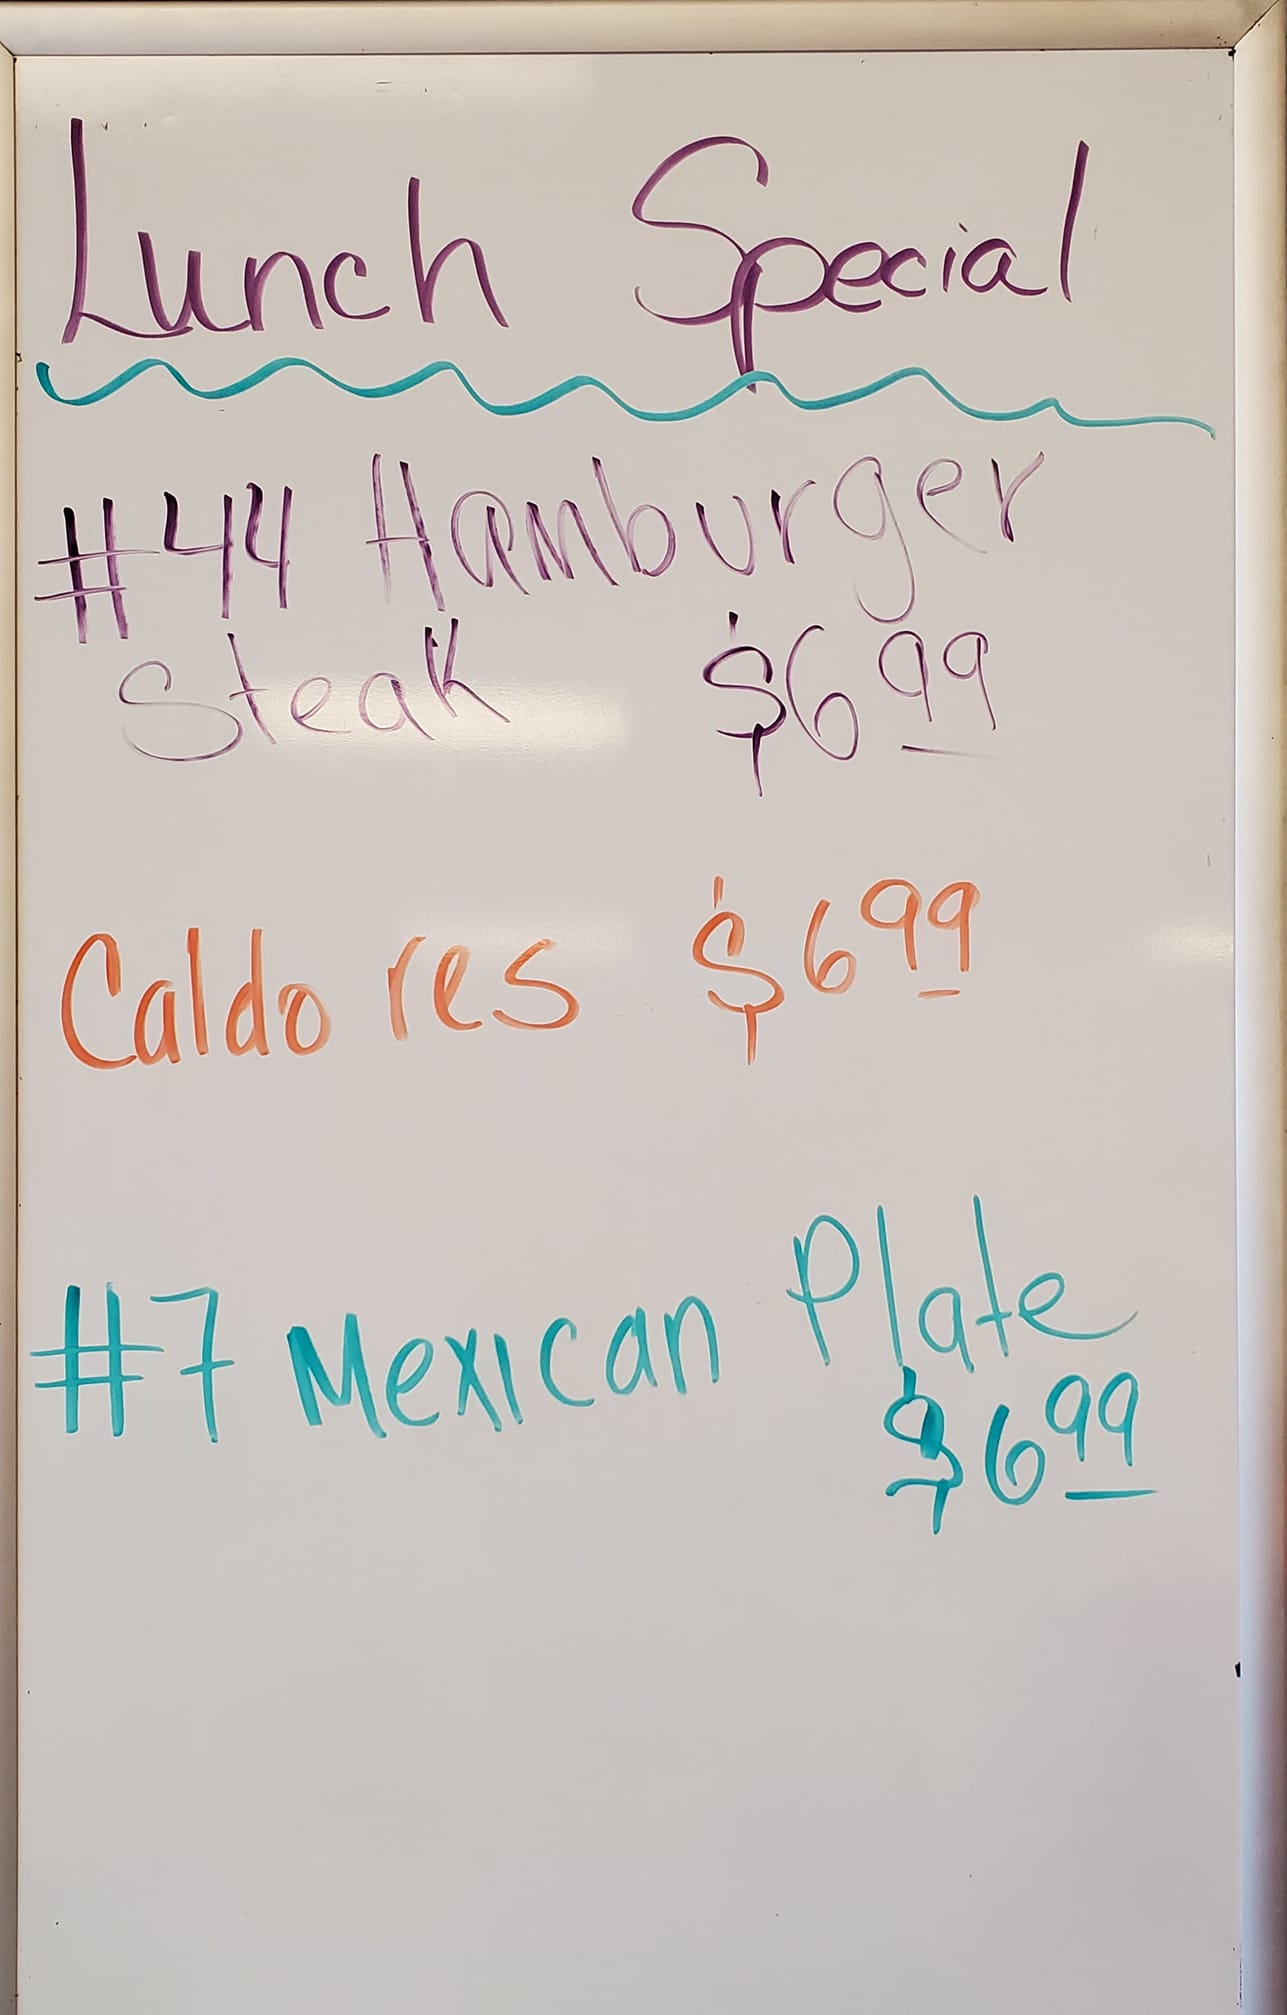 Lunch Special
#44 Hamburger
Steak $6 99
Caldo res $6 99
#7 Mexican Plate
$6 99